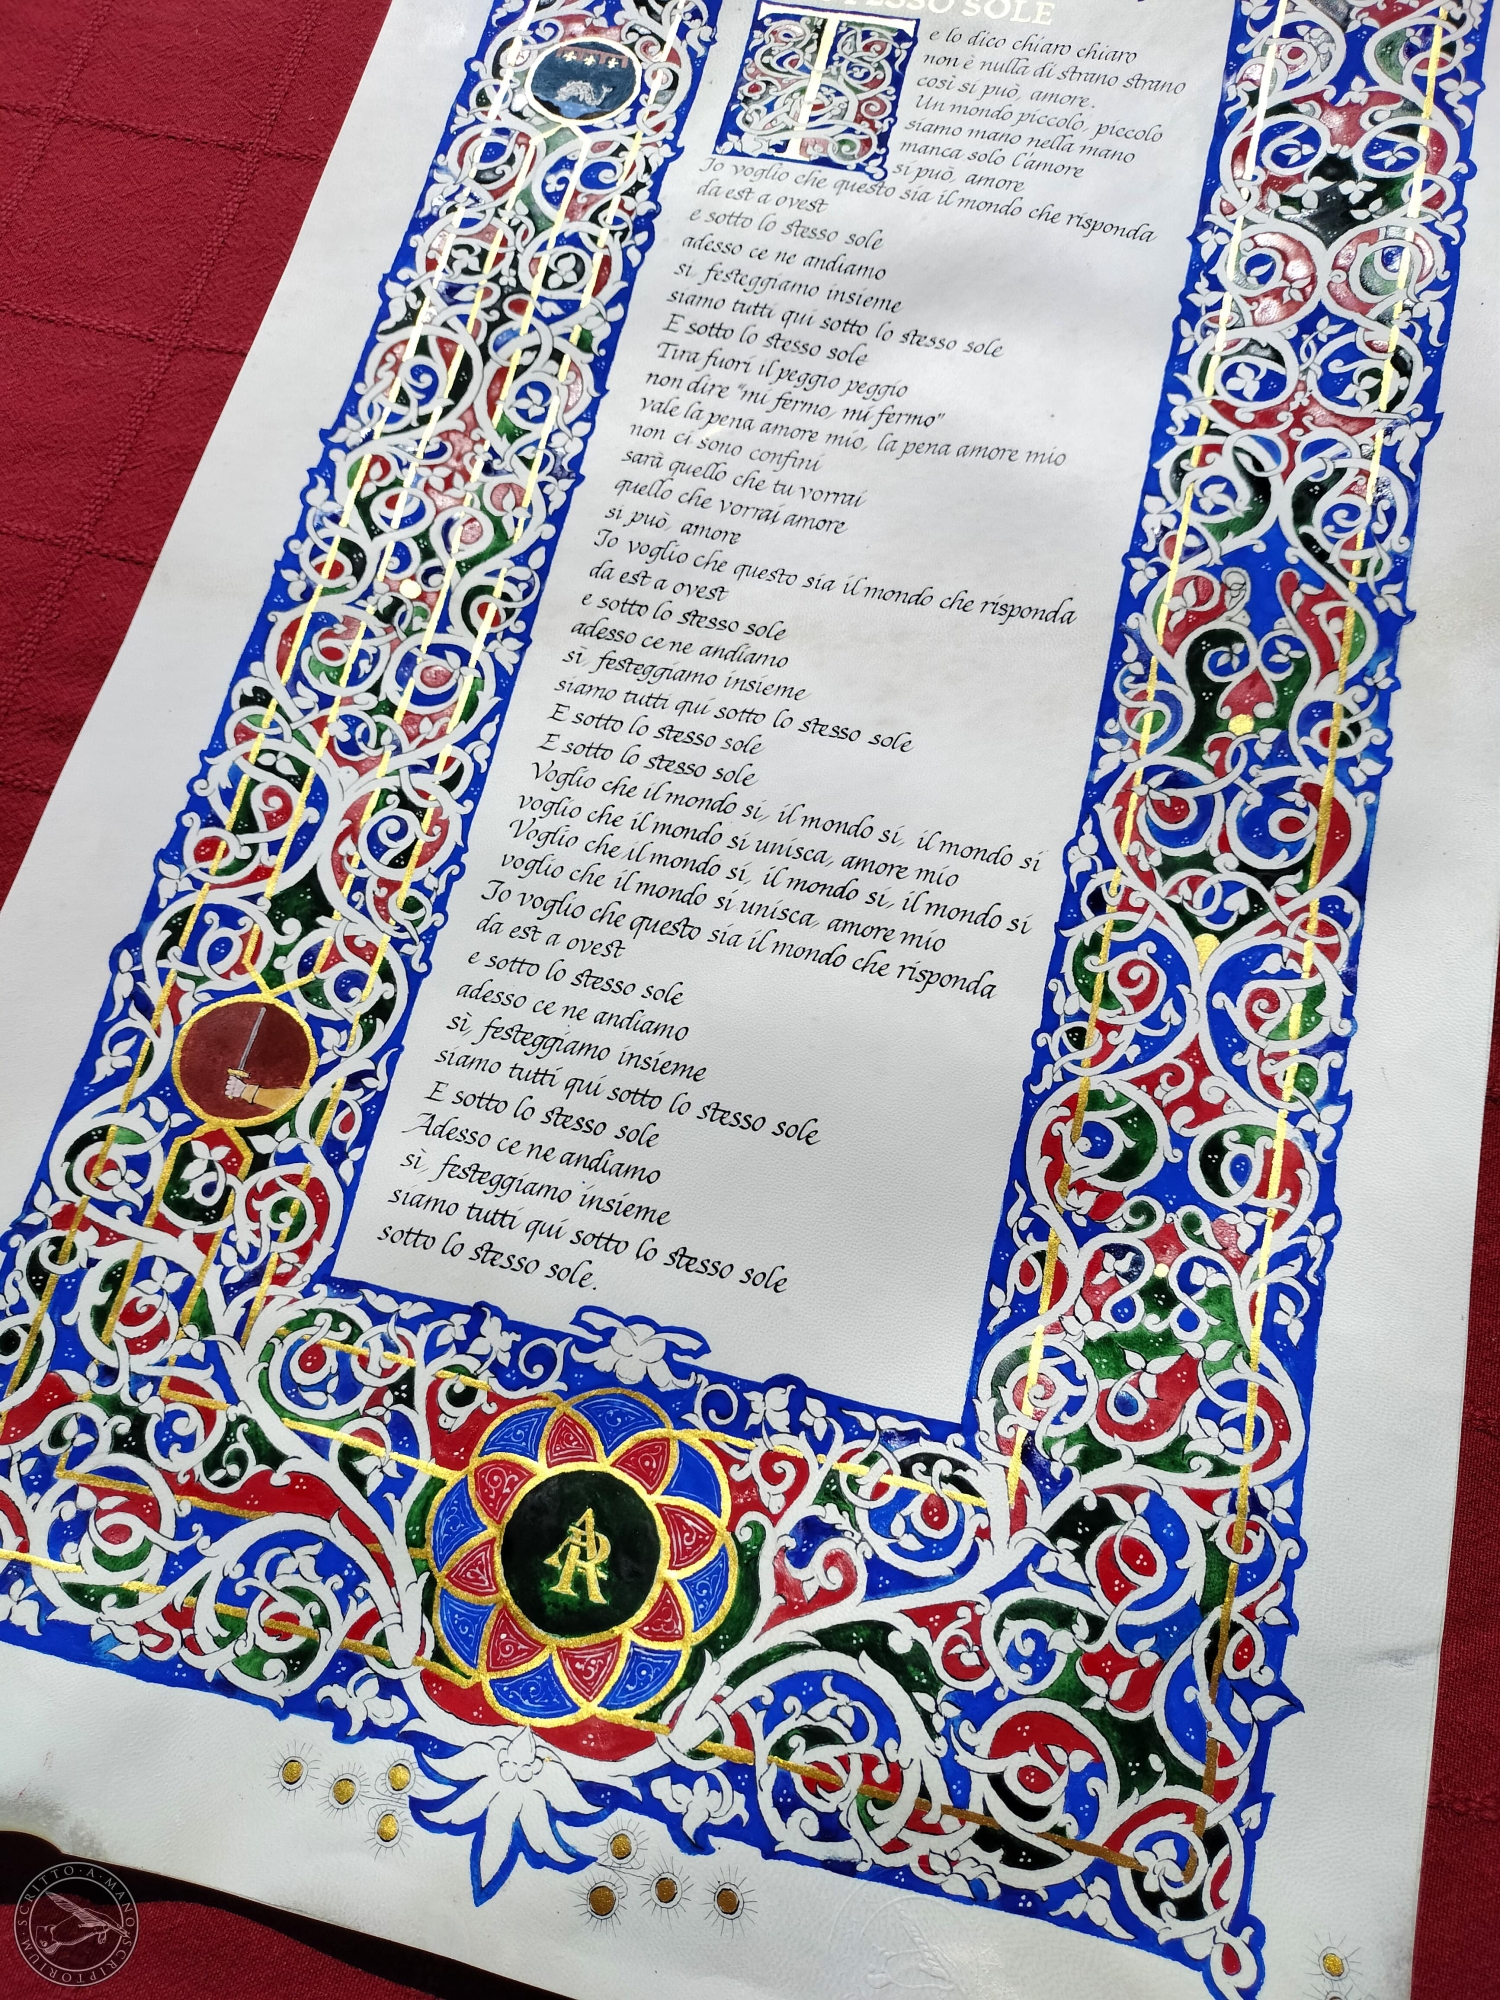 STESSO SOLE
T
e lo dico chiaro chiaro
non è nulla di strano strano
così si può, amore.
Un mondo piccolo, piccolo
siamo mano nella mano
manca solo l'amore
si può, amore
Io voglio che questo sia il mondo che risponda
da est a ovest
e sotto lo stesso sole
adesso ce ne andiamo
sì, festeggiamo insieme
siamo tutti qui sotto lo stesso sole
E sotto lo stesso sole
Tira fuori il peggio peggio
non dire "mi fermo, mi fermo"
vale la pena amore mio, la pena amore mio
non ci sono confini
sarà quello che tu vorrai
quello che vorrai amore
si può, amore
Io voglio che questo sia il mondo che risponda
da est a ovest
e sotto lo stesso sole
adesso ce ne andiamo
sì, festeggiamo insieme
siamo tutti qui sotto lo stesso sole
E sotto lo stesso sole
E sotto lo stesso sole
Voglio che il mondo si, il mondo si, il mondo si
voglio che il mondo si unisca, amore mio
Voglio che il mondo si, il mondo si, il mondo si
voglio che il mondo si unisca, amore mio
Io voglio che questo sia il mondo che risponda
da est a ovest
e sotto lo stesso sole
adesso ce ne andiamo
sì, festeggiamo insieme
siamo tutti qui sotto lo stesso sole
E sotto lo stesso sole
Adesso ce ne andiamo
sì, festeggiamo insieme
siamo tutti qui sotto lo stesso sole
sotto lo stesso sole.
AR
SCRITTO·A·MANO·SCRIPTORIUM